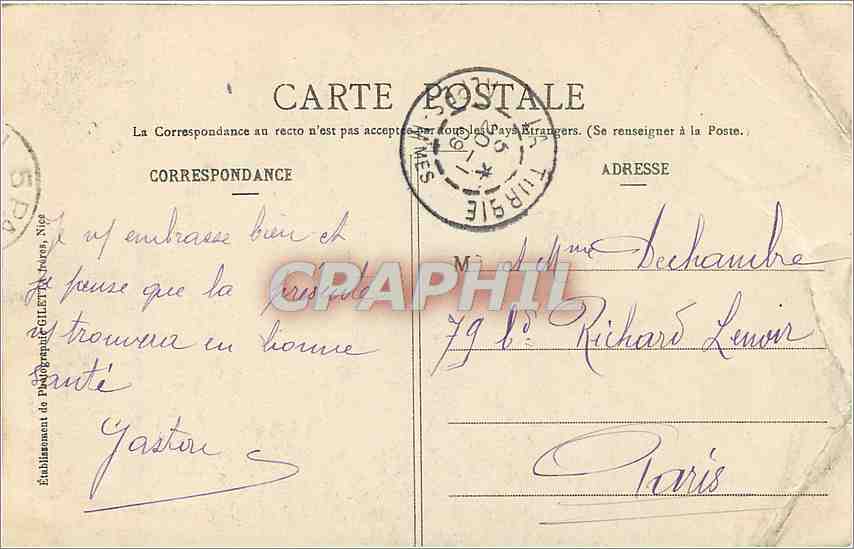 CARTE POSTALE
La Correspondance au recto n'est pas acceptée par tous les Pays Étrangers. (Se renseigner à la Poste.)
CORRESPONDANCE
Je v/ embrasse bien et
je pense que la présente
v/ trouvera en bonne
santé
Gaston
ADRESSE
M et Mme Dechambre
79 bd Richard Lenoir
Paris
LA TURBIE
ALPES-MMES
Établissement de Photographie GILETTA frères, Nice
CPAPHIL